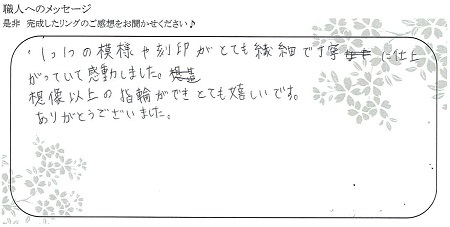 職人へのメッセージ
是非 完成したリングのご感想をお聞かせください♪
・1つ1つの模様や刻印がとても繊細で丁寧に仕上
がっていて感動しました。
想像以上の指輪ができとても嬉しいです。
ありがとうございました。